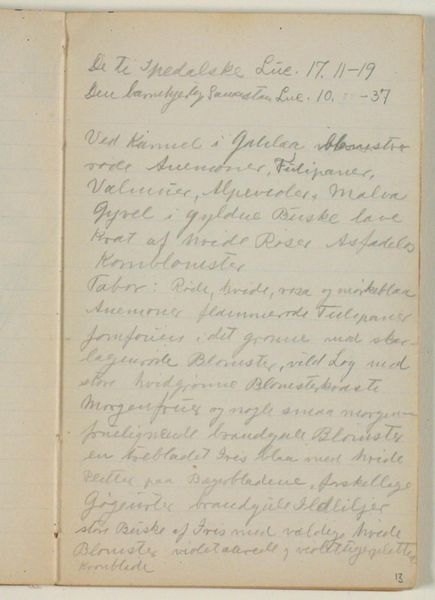 De ti Spedalske Luc. 17. 11-19
Den barmhjertig Samaritan Luc. 10. -37
Ved Karmel i Galilæa blomstrer
røde Anemoner, Tulipaner,
Valmuer, Alpevioler, Malva
Gyvel i gyldne Buske lave
Krat af hvide Roser Asfadelos
Kornblomster
Tabor: Røde, hvide, rosa og mørkeblaa
Anemoner flammerøde Tulipaner
i det grønne med skar-
lagenrøde Blomster, vild Løg med
store hvidgrønne Blomsterkvaste
Morgenfruer og nogle smaa morgen-
fruelignende brandgule Blomster
en trebladet Iris blaa med hvide
Pletter paa Bægerbladene, forskellige
Gøgeurter brandgule Ildliljer
store Buske af Iris med vældige hvide
Blomster violetaarede og violettigerplettede
Kronblade
13